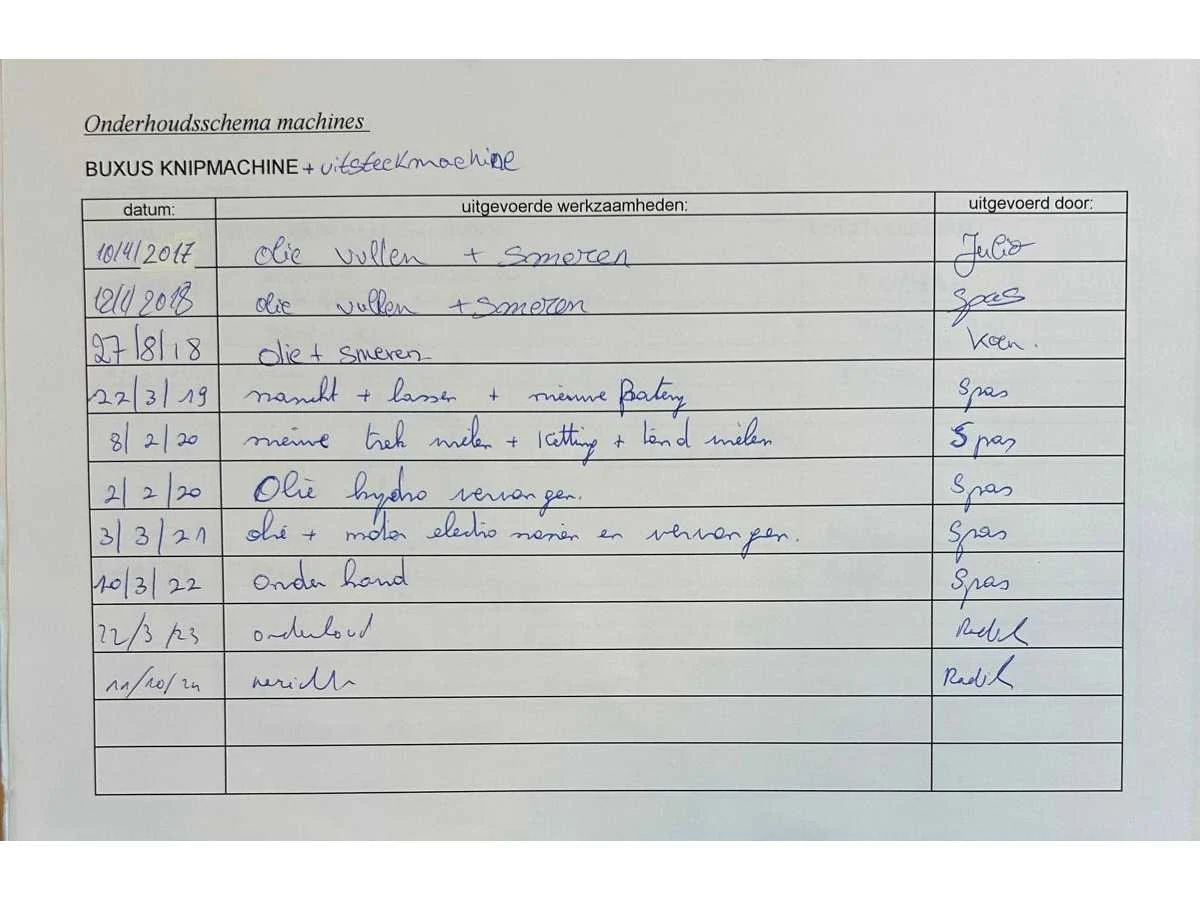 Onderhoudsschema machines
BUXUS KNIPMACHINE + uitsteekmachine
datum: uitgevoerde werkzaamheden: uitgevoerd door:
10/4/2017 olie vullen + smeren Julio
12/1/2018 olie vullen + smeren Spas
27/8/18 olie + smeren Koen.
22/3/19 + lassen + nieuwe Batery Spas
8/2/20 nieuwe trek wielen + ketting + tand wielen Spas
2/2/20 Olie hydro vervangen. Spas
3/3/21 olie + motor electro en vervangen. Spas
10/3/22 onder houd Spas
22/3/23 onderhoud Radik
11/10/24 Radik